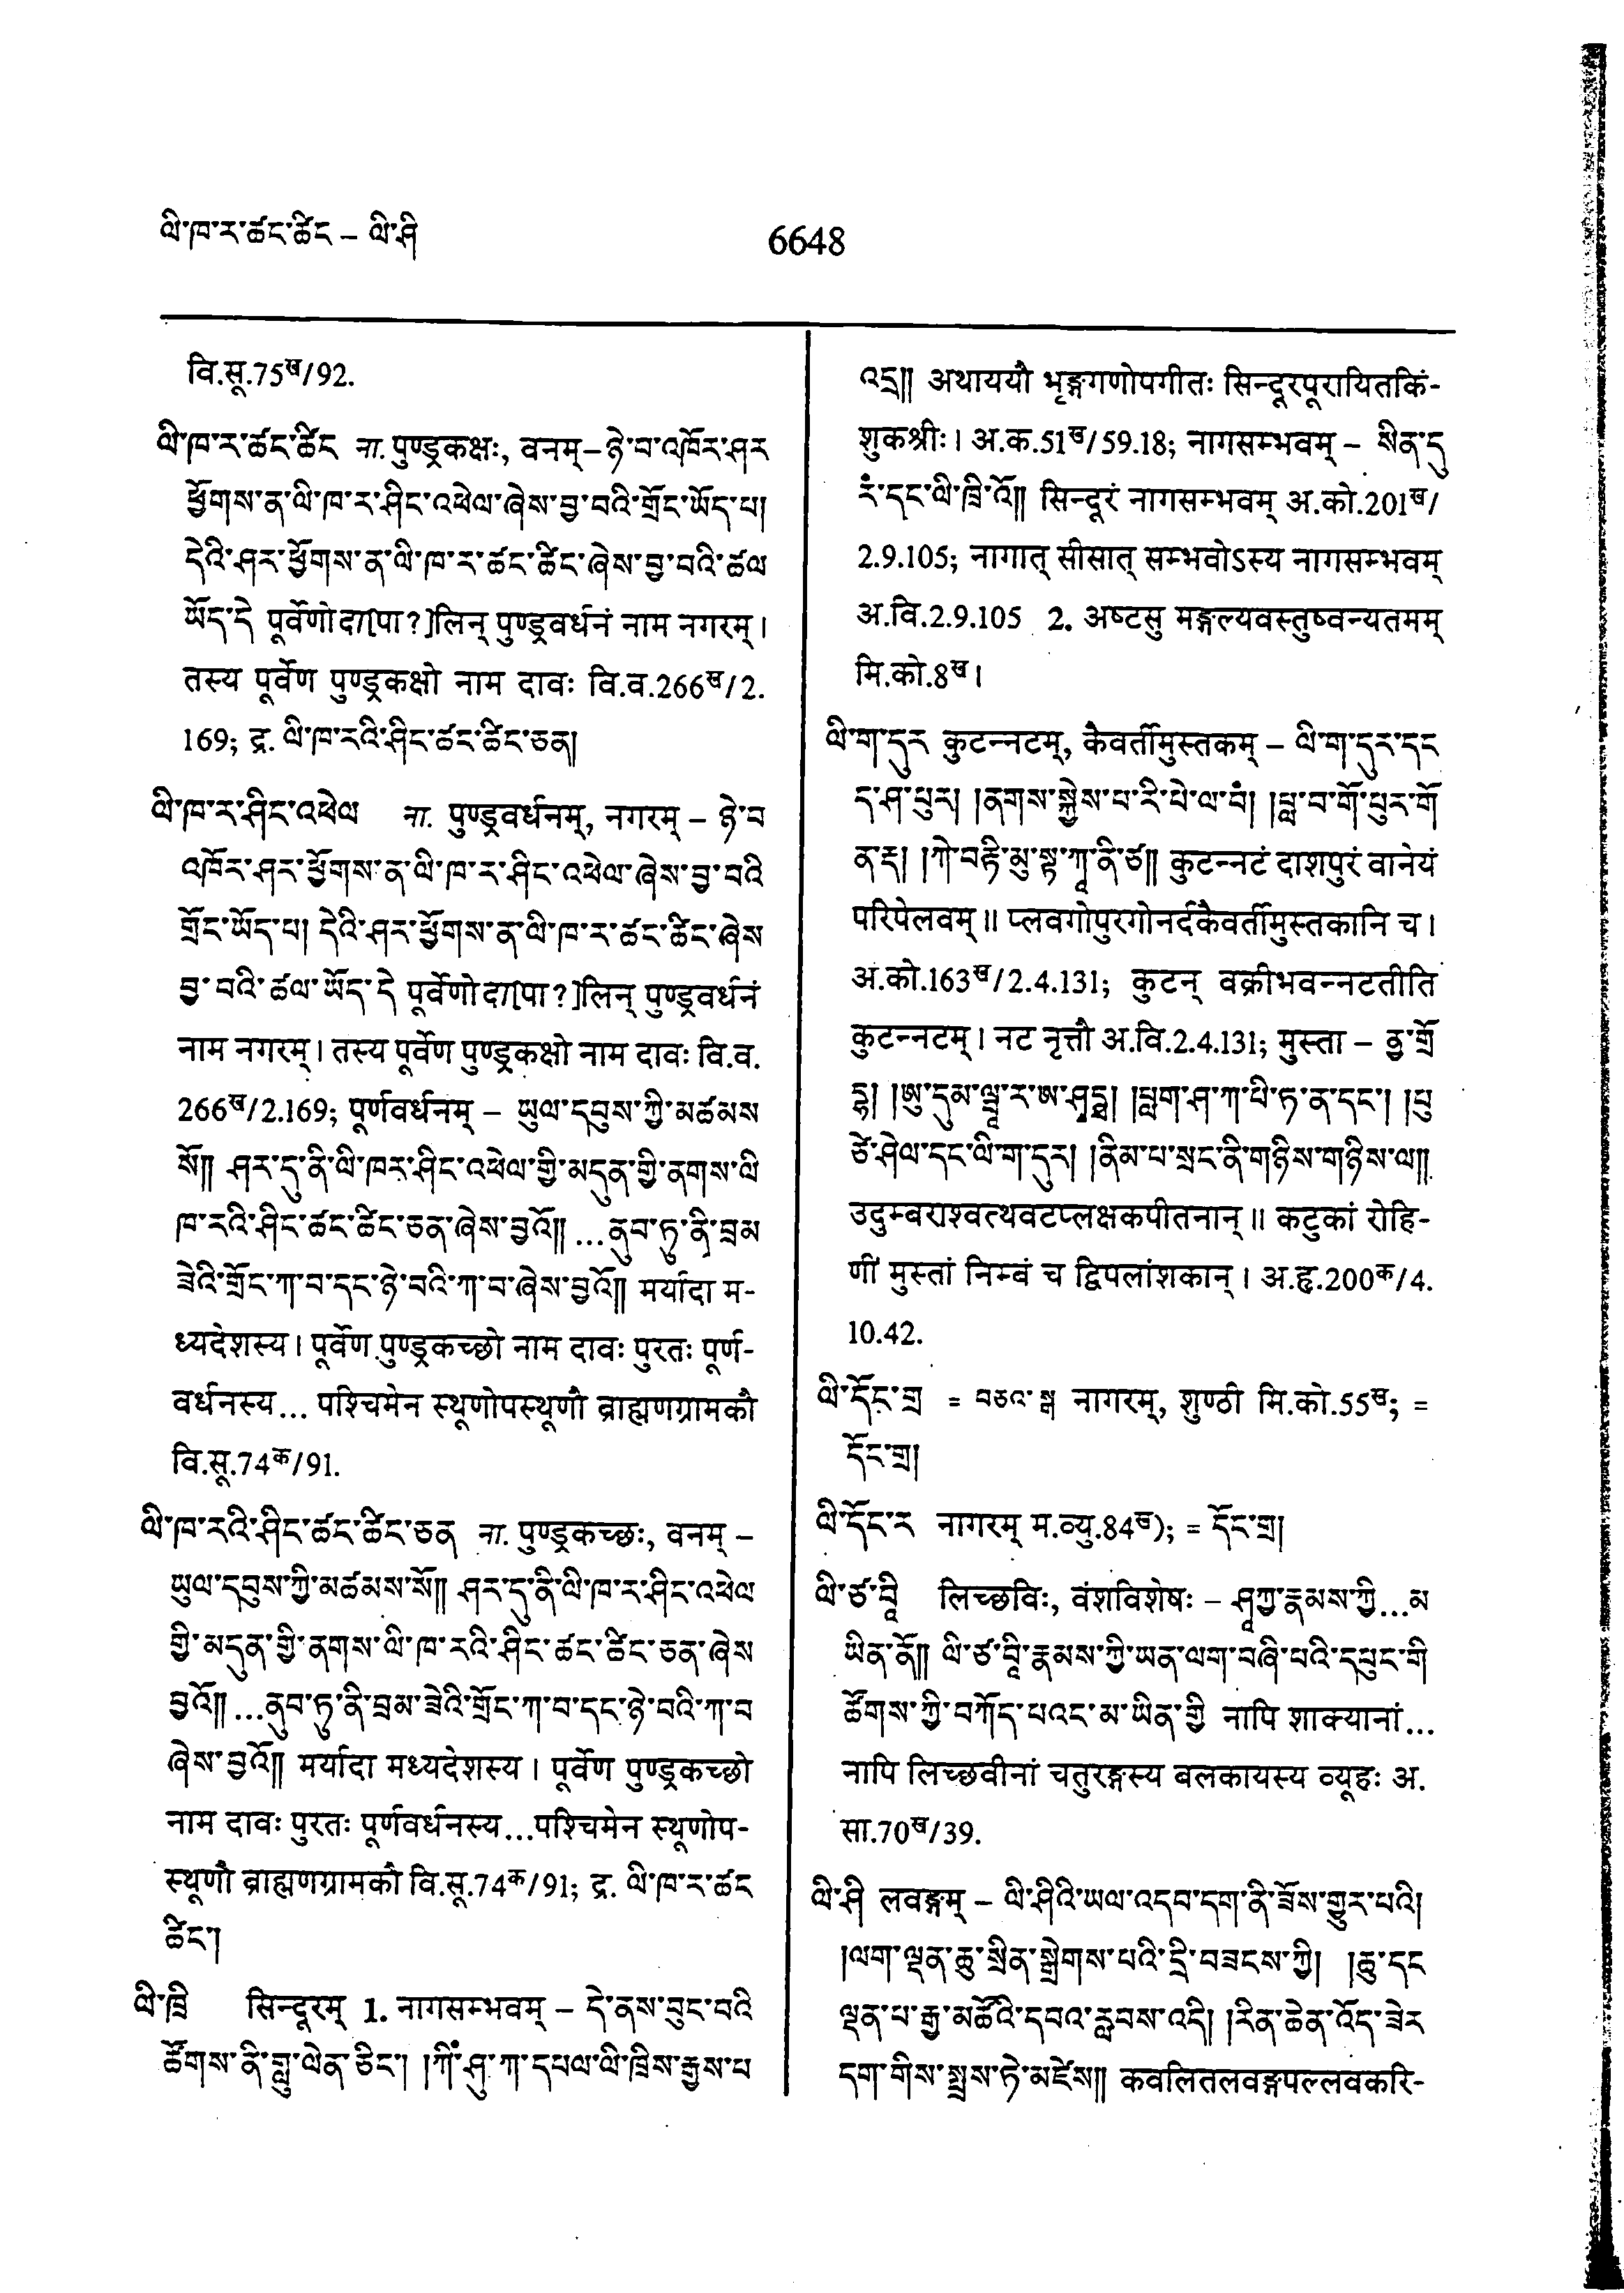 ལི་ཁ་ར་ཚང་ཚིང – ལི་ཤི
6648
वि.सू.75ख/92.
ལི་ཁ་ར་ཚང་ཚིང ना. पुण्ड्रकक्षः, वनम् – ཉེ་བ་འཁོར་ཤར
ཕྱོགས་ན་ལི་ཁ་ར་ཤིང་འཕེལ་ཞེས་བྱ་བའི་གྲོང་ཡོད་པ།
དེའི་ཤར་ཕྱོགས་ན་ལི་ཁ་ར་ཚང་ཚིང་ཞེས་བྱ་བའི་ཚལ
ཡོད་དེ पूर्वेणोदा[पा?]लिन् पुण्ड्रवर्धनं नाम नगरम्।
तस्य पूर्वेण पुण्ड्रकक्षो नाम दावः वि.व.266ख/2.
169; द्र. ལི་ཁ་རའི་ཤིང་ཚང་ཚིང་ཅན།
ལི་ཁ་ར་ཤིང་འཕེལ ना. पुण्ड्रवर्धनम्, नगरम् – ཉེ་བ
འཁོར་ཤར་ཕྱོགས་ན་ལི་ཁ་ར་ཤིང་འཕེལ་ཞེས་བྱ་བའི
གྲོང་ཡོད་པ། དེའི་ཤར་ཕྱོགས་ན་ལི་ཁ་ར་ཚང་ཚིང་ཞེས
བྱ་བའི་ཚལ་ཡོད་དེ पूर्वेणोदा[पा?]लिन् पुण्ड्रवर्धनं
नाम नगरम्। तस्य पूर्वेण पुण्ड्रकक्षो नाम दावः वि.व.
266ख/2.169; पूर्णवर्धनम् – ཡུལ་དབུས་ཀྱི་མཚམས
སོ།། ཤར་དུ་ནི་ལི་ཁར་ཤིང་འཕེལ་གྱི་མདུན་གྱི་ནགས་ལི
ཁ་རའི་ཤིང་ཚང་ཚིང་ཅན་ཞེས་བྱའོ།། ...ནུབ་ཏུ་ནི་བྲམ
ཟེའི་གྲོང་ཀ་བ་དང་ཉེ་བའི་ཀ་བ་ཞེས་བྱའོ།། मर्यादा म-
ध्यदेशस्य। पूर्वेण पुण्ड्रकच्छो नाम दावः पुरतः पूर्ण-
वर्धनस्य... पश्चिमेन स्थूणोपस्थूणौ ब्राह्मणग्रामकौ
वि.सू.74क/91.
ལི་ཁ་རའི་ཤིང་ཚང་ཚིང་ཅན ना. पुण्ड्रकच्छः, वनम् –
ཡུལ་དབུས་ཀྱི་མཚམས་སོ།། ཤར་དུ་ནི་ལི་ཁ་ར་ཤིང་འཕེལ
གྱི་མདུན་གྱི་ནགས་ལི་ཁ་རའི་ཤིང་ཚང་ཚིང་ཅན་ཞེས
བྱའོ།། ...ནུབ་ཏུ་ནི་བྲམ་ཟེའི་གྲོང་ཀ་བ་དང་ཉེ་བའི་ཀ་བ
ཞེས་བྱའོ།། मर्यादा मध्यदेशस्य। पूर्वेण पुण्ड्रकच्छो
नाम दावः पुरतः पूर्णवर्धनस्य...पश्चिमेन स्थूणोप-
स्थूणौ ब्राह्मणग्रामकौ वि.सू.74क/91; द्र. ལི་ཁ་ར་ཚང
ཚིང་།
ལི་ཁྲི सिन्दूरम् 1. नागसम्भवम् – དེ་ནས་བུང་བའི
ཚོགས་ནི་གླུ་ལེན་ཅིང་། །ཀིཾ་ཤུ་ཀ་དཔལ་ལི་ཁྲིས་རྒྱས་པ
འདྲ།། अथाययौ भृङ्गगणोपगीतः सिन्दूरपूरायितकिं-
शुकश्रीः। अ.क.51ख/59.18; नागसम्भवम् – སིན་དུ
རཾ་དང་ལི་ཁྲི་འོ།། सिन्दूरं नागसम्भवम् अ.को.201ख/
2.9.105; नागात् सीसात् सम्भवोऽस्य नागसम्भवम्
अ.वि.2.9.105 2. अष्टसु मङ्गल्यवस्तुष्वन्यतमम्
मि.को.8ख।
ལི་ག་དུར कुटन्नटम्, कैवर्तीमुस्तकम् – ལི་ག་དུར་དང
ད་ཤ་པུར། །ནགས་སྐྱེས་པ་རི་པེ་ལ་བཾ། །པླ་བ་གོ་པུར་གོ
ན་ར྄ད། །ཀེ་བརྟི་མུ་སྟ་ཀཱ་ནི་ཙ།། कुटन्नटं दाशपुरं वानेयं
परिपेलवम्॥ प्लवगोपुरगोनर्दकैवर्तीमुस्तकानि च।
अ.को.163ख/2.4.131; कुटन् वक्रीभवन्नटतीति
कुटन्नटम्। नट नृत्तौ अ.वि.2.4.131; मुस्ता – ནྱ་གྲོ
དྷ། །ཨུ་དུམ་ལྦཱ་ར་ཨ་ཤྭཏྠ། །པླག་ཤ་ཀ་པི་ཏ་ན་དང་། །པུ
ཙེ་ཤེལ་དང་ལི་ག་དུར། །ནིམ་པ་སྲང་ནི་གཉིས་གཉིས་ལ།།
उदुम्बराश्वत्थवटप्लक्षकपीतनान्॥ कटुकां रोहि-
णीं मुस्तां निम्बं च द्विपलांशकान्। अ.हृ.200क/4.
10.42.
ལི་དོང་གྲ = བཅའ་སྒ नागरम्, शुण्ठी मि.को.55ख; =
དོང་གྲ།
ལི་དོང་ར नागरम् म.व्यु.84ख); = དོང་གྲ།
ལི་ཙ་བཱི लिच्छविः, वंशविशेषः – ཤཱཀྱ་རྣམས་ཀྱི...མ
ཡིན་ནོ།། ལི་ཙ་བཱི་རྣམས་ཀྱི་ཡན་ལག་བཞི་པའི་དཔུང་གི
ཚོགས་ཀྱི་བཀོད་པའང་མ་ཡིན་གྱི नापि शाक्यानां...
नापि लिच्छवीनां चतुरङ्गस्य बलकायस्य व्यूहः अ.
सा.70ख/39.
ལི་ཤི लवङ्गम् – ལི་ཤིའི་ཡལ་འདབ་དག་ནི་ཟོས་གྱུར་པའི།
།ལག་ལྡན་ཆུ་སྲིན་སྒྲེགས་པའི་དྲི་བཟངས་ཀྱི། །ཆུ་དང
ལྡན་པ་རྒྱ་མཚོའི་དབའ་རླབས་འདི། །རིན་ཆེན་འོད་ཟེར
དག་གིས་སྤྲས་ཏེ་མཛེས།། कवलितलवङ्गपल्लवकरि-